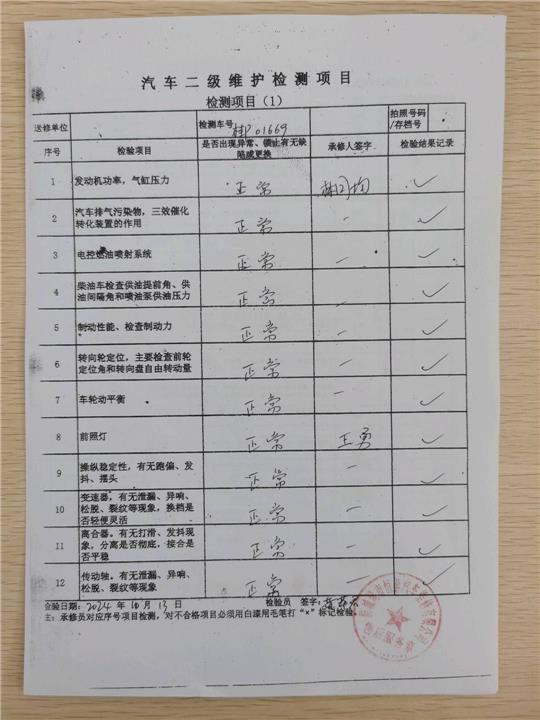 汽车二级维护检测项目
检测项目（1）
送修单位 检测车号 桂P01669 拍照号码/存档号
序号 检验项目 是否出现异常、磺止有无缺陷或更换 承修人签字 检验结果记录
1 发动机功率，气缸压力 正常 ✓
2 汽车排气污染物，三效催化转化装置的作用 正常 — ✓
3 电控燃油喷射系统 正常 — ✓
4 柴油车检查供油提前角、供油间隔角和喷油泵供油压力 正常 — ✓
5 制动性能、检查制动力 正常 — ✓
6 转向轮定位，主要检查前轮定位角和转向盘自由转动量 正常 — ✓
7 车轮动平衡 正常 — ✓
8 前照灯 正常 王勇 ✓
9 操纵稳定性，有无跑偏、发抖、摆头 正常 — ✓
10 变速器，有无泄漏、异响、松脱、裂纹等现象，换档是否轻便灵活 正常 — ✓
11 离合器。有无打滑、发抖现象，分离是否彻底，接合是否平稳 正常 — ✓
12 传动轴。有无泄漏、异响、松脱、裂纹等现象 正常 — ✓
佥验日期：2024 年 10 月 13 日 检验员 签字：
主：承修员对应序号项目检测，对不合格项目必须用白漆用毛笔打“×”标记检验